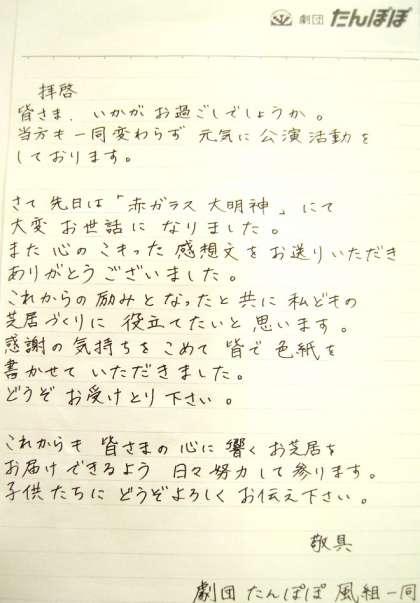 劇団 たんぽぽ
拝啓
皆さま、いかがお過ごしでしょうか。
当方も一同変わらず 元気に公演活動を
しております。
さて先日は「赤ガラス大明神」にて
大変お世話になりました。
また心のこもった感想文をお送りいただき
ありがとうございました。
これからの励みとなったと共に私どもの
芝居づくりに役立てたいと思います。
感謝の気持ちをこめて皆で色紙を
書かせていただきました。
どうぞお受けとり下さい。
これからも皆さまの心に響くお芝居を
お届けできるよう 日々努力して参ります。
子供たちにどうぞよろしくお伝え下さい。
敬具
劇団 たんぽぽ 風組一同